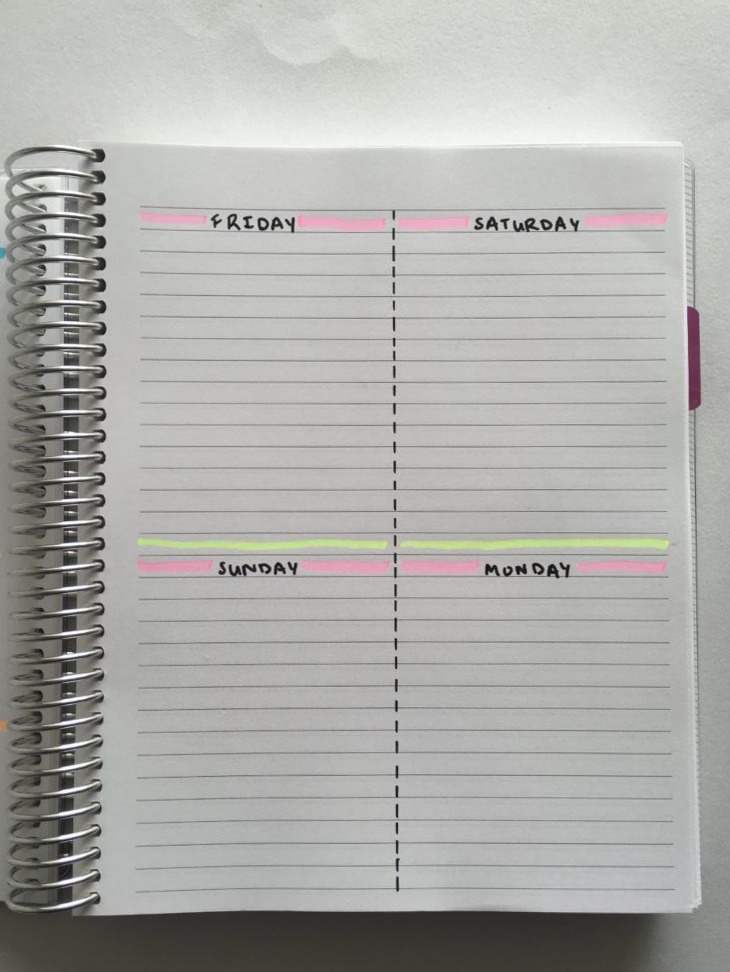 FRIDAY SATURDAY
SUNDAY MONDAY